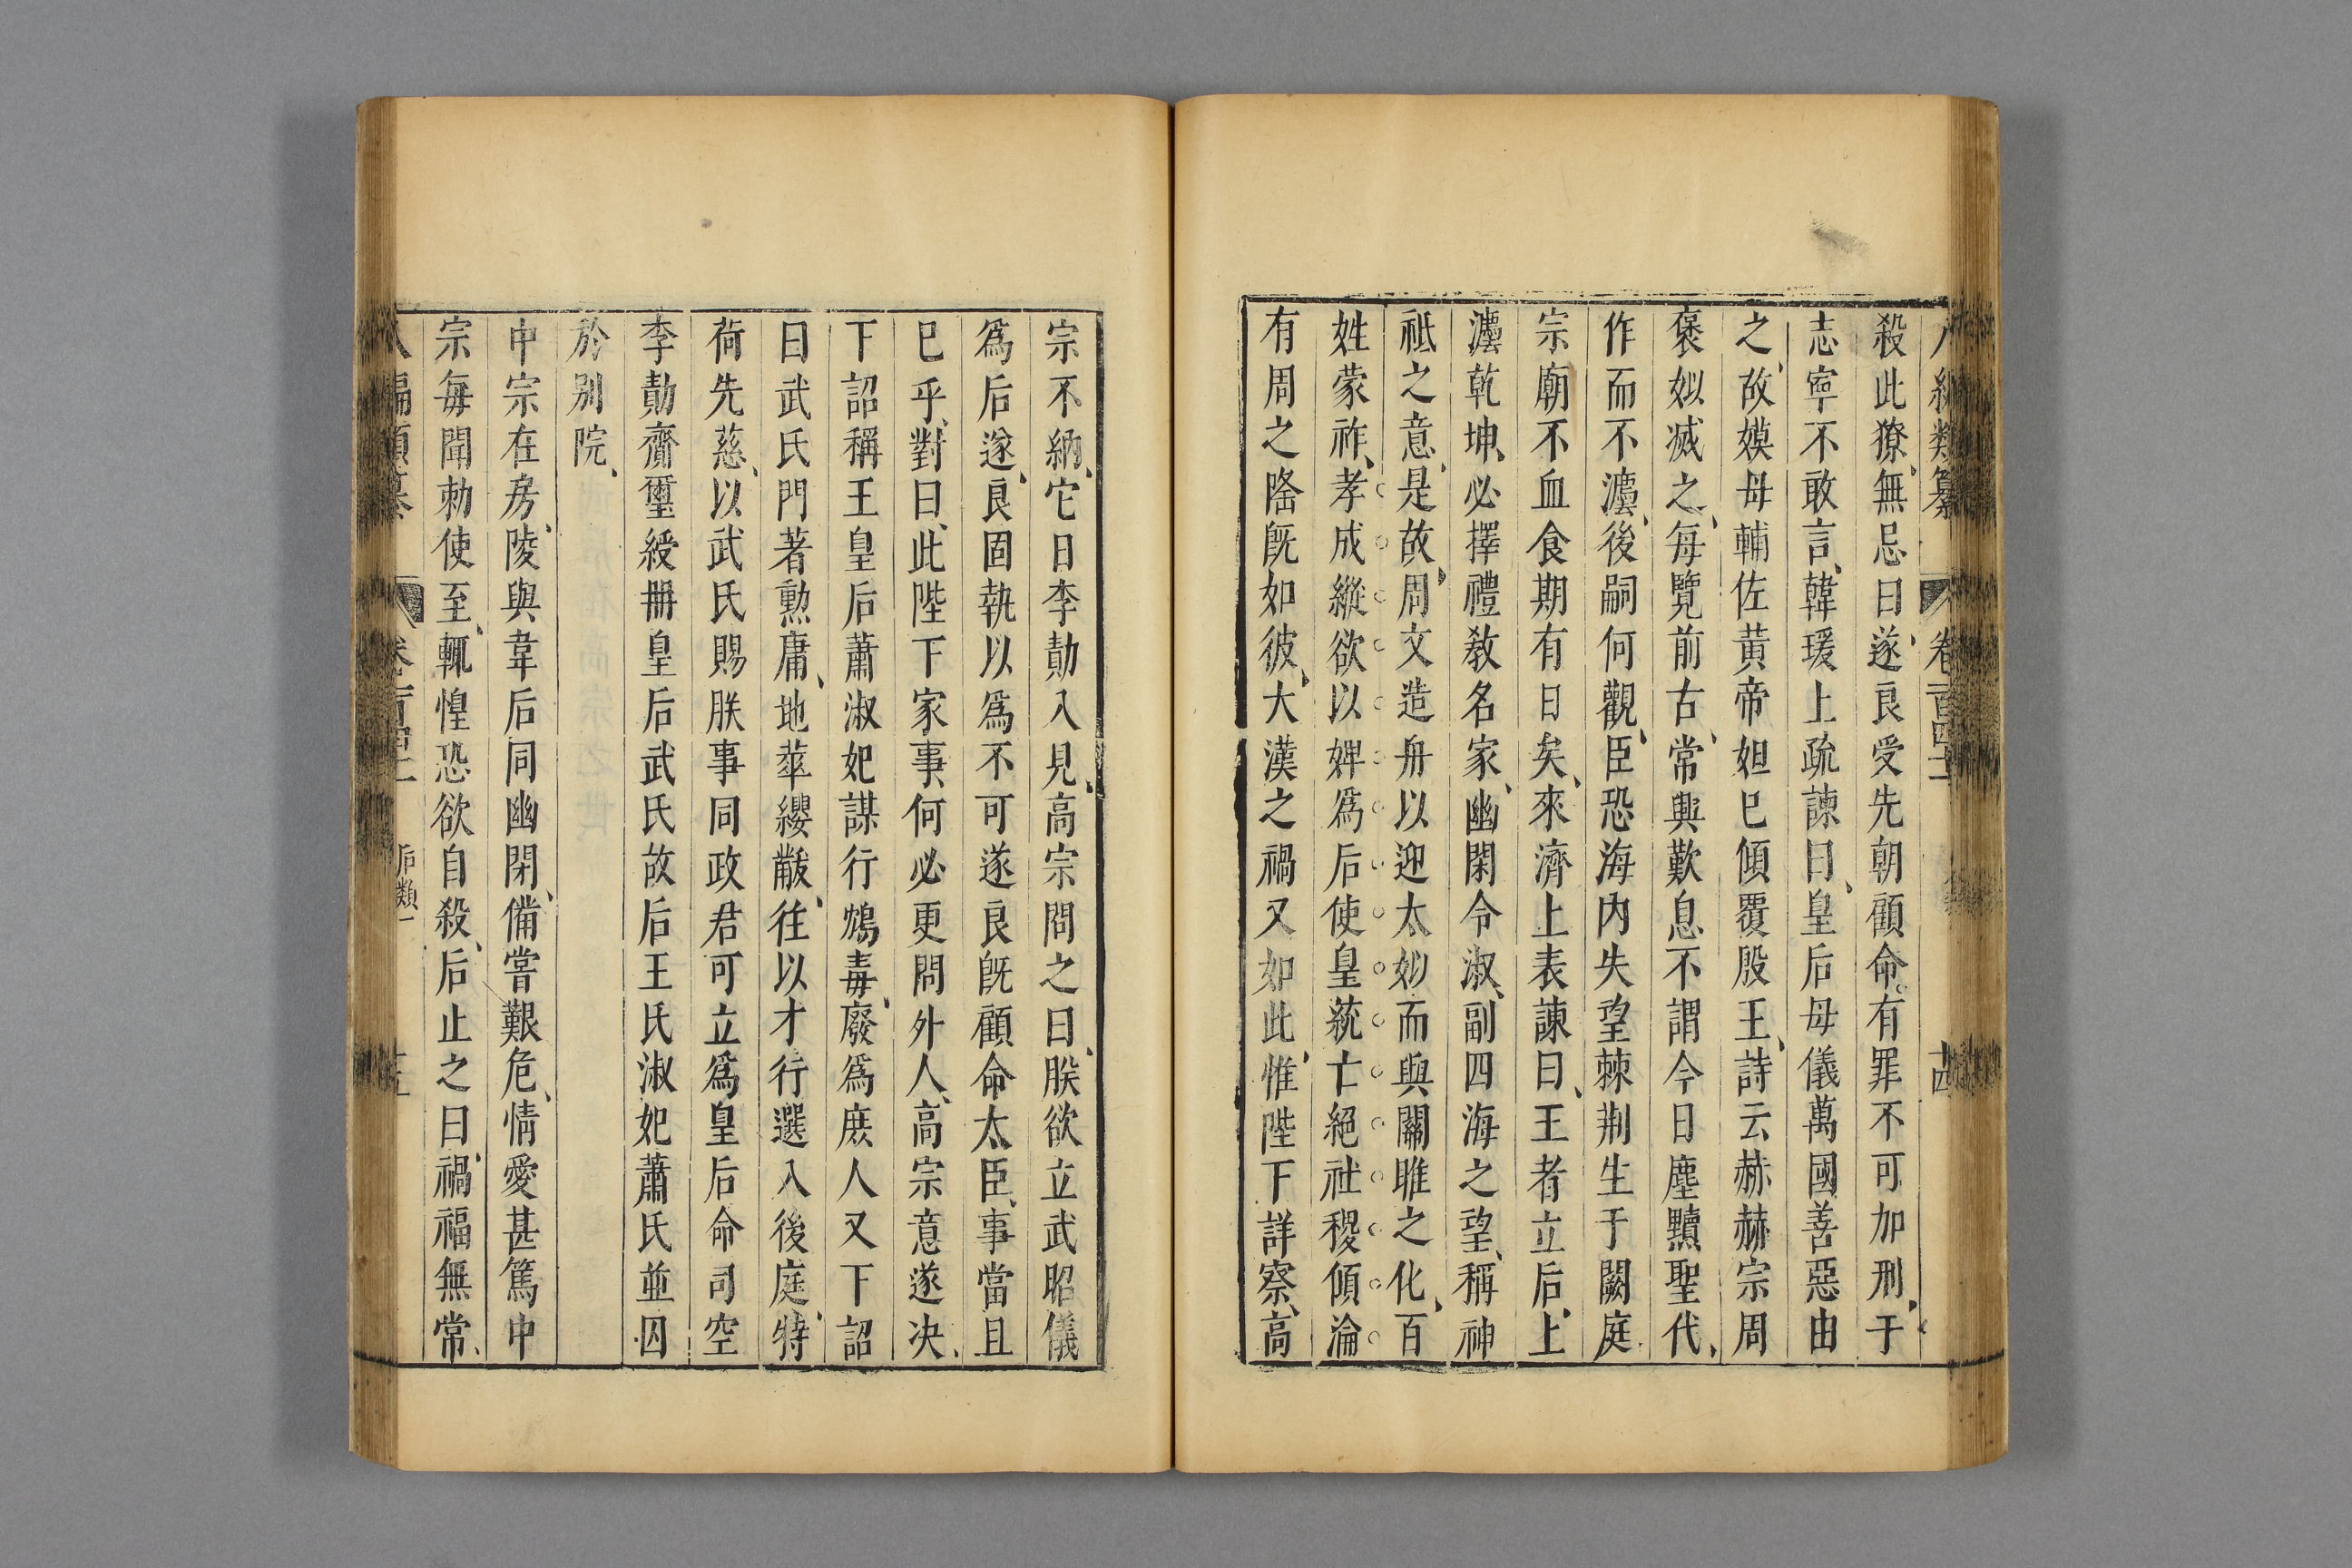 編類纂 卷一百四十二 十四
殺此獠無忌曰遂良受先朝顧命有罪不可加刑于
志寧不敢言韓瑗上疏諫曰皇后母儀萬國善惡由
之故嫫母輔佐黃帝妲巳傾覆殷王詩云赫赫宗周
褒姒滅之每覽前古常興歎息不謂今日塵黷聖代
作而不灋後嗣何觀臣恐海內失望棘荆生于闕庭
宗廟不血食期有日矣來濟上表諫曰王者立后上
灋乾坤必擇禮教名家幽閑令淑副四海之望稱神
祗之意是故周文造舟以迎太姒而與關雎之化百
姓蒙祚孝成縱欲以婢爲后使皇統亡絕社稷傾淪
有周之隆旣如彼大漢之禍又如此惟陛下詳察高
宗不納它日李勣入見高宗問之曰朕欲立武昭儀
爲后遂良固執以爲不可遂良旣顧命太臣事當且
巳乎對曰此陛下家事何必更問外人高宗意遂決
下詔稱王皇后蕭淑妃謀行鴆毒廢爲庶人又下詔
曰武氏門著勲庸地華纓黻往以才行選入後庭特
荷先慈以武氏賜朕事同政君可立爲皇后命司空
李勣齎璽綬冊皇后武氏故后王氏淑妃蕭氏並囚
於别院
中宗在房陵與韋后同幽閉備嘗艱危情愛甚篤中
宗每聞勅使至輒惶恐欲自殺后止之曰禍福無常
八編類纂 卷一百四十二 后類一 十五